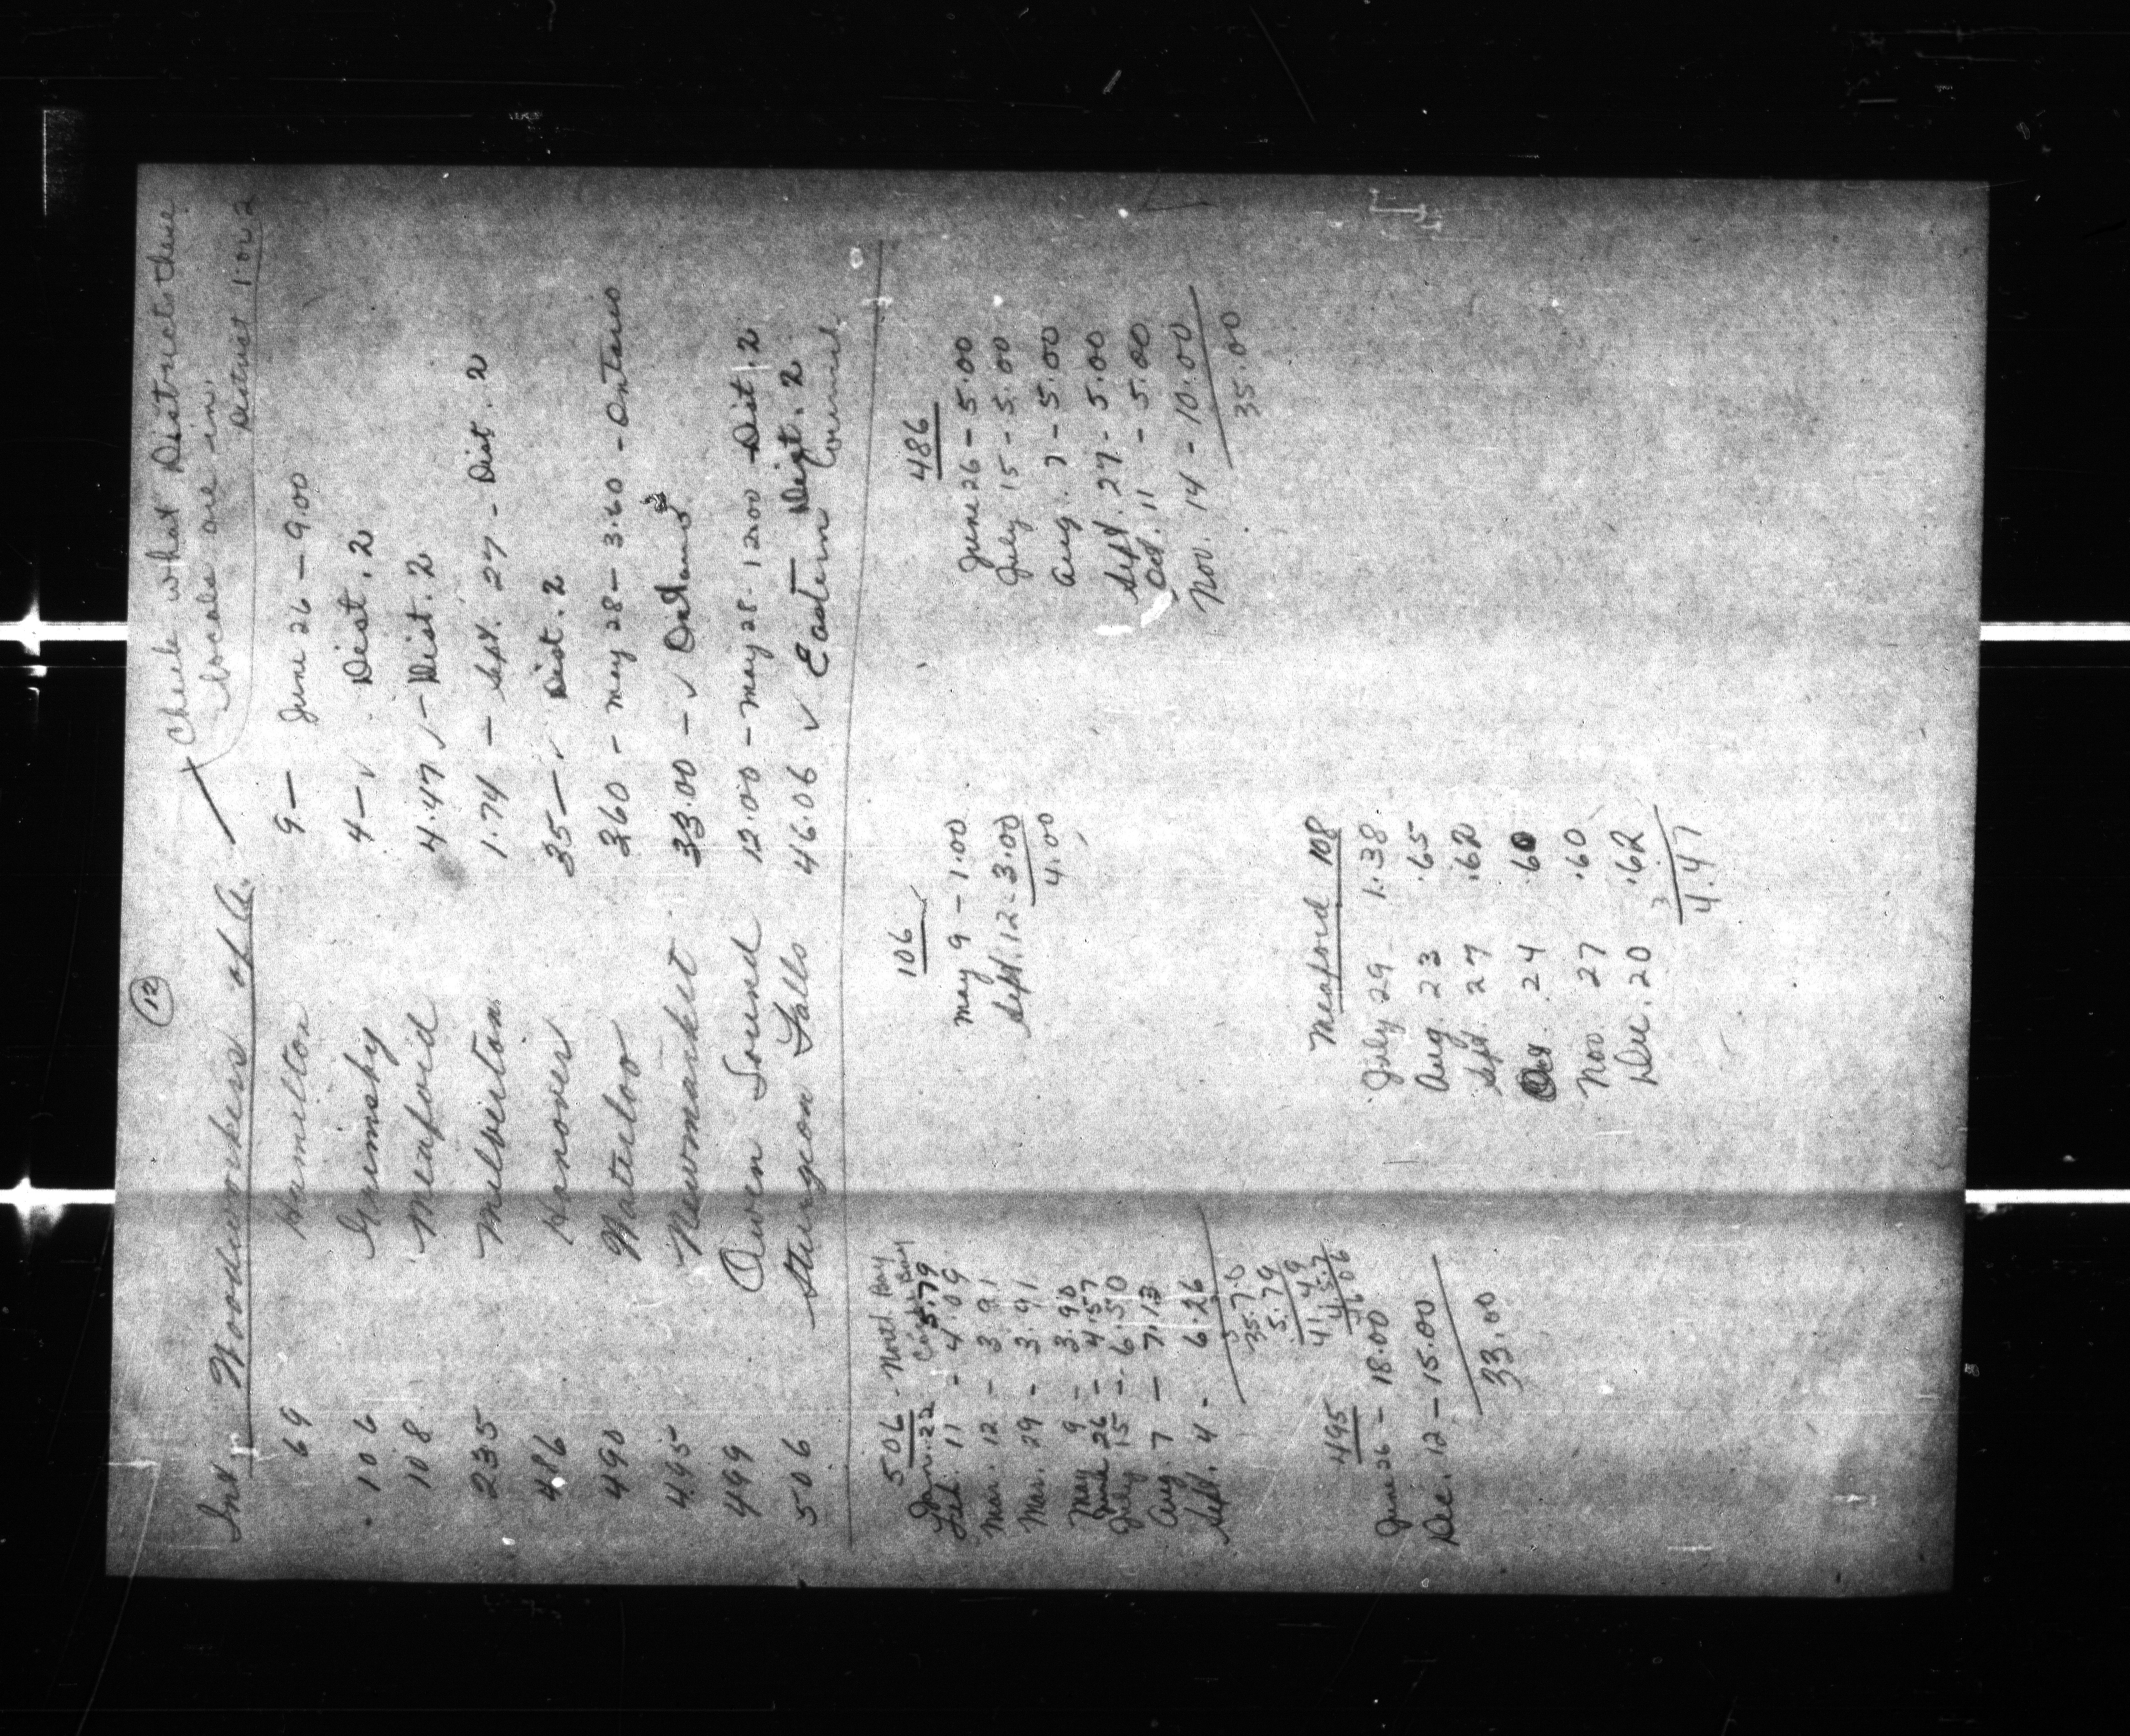 (12)
Check what District these
locals are in.
District 1 or 2
Int. Woodworkers of A.
69 Hamilton 9— June 26 – 9.00
106 Grimsby 4—✓ Dist. 2
108 Meaford 4.47 ✓ – Dist. 2
235 Milverton 1.74 – Sept. 27 – Dist. 2
486 Hanover 35—✓ Dist. 2
490 Waterloo 3.60 – May 28 – 3.60 – Ontario
495 Newmarket 33.00 – ✓
499 Owen Sound 12.00 – May 28 – 12.00 Dist. 2
506 Sturgeon Falls 46.06 ✓ Eastern Council
Dist. 2
506 – North Bay
Jan. 22 5.79
Feb. 11 – 4.09
Mar. 12 – 3.91
Mar. 29 – 3.91
May 9 – 3.90
June 26 – 4.57
July 15 – 6.50
Aug. 7 – 7.13
Sept. 4 – 6.26
35.70
5.79
41.49
4.57
46.06
106
May 9 – 1.00
Sept. 12 – 3.00
4.00
486
June 26 – 5.00
July 15 – 5.00
Aug. 7 – 5.00
Sept. 27 – 5.00
Oct. 11 – 5.00
Nov. 14 – 10.00
35.00
495
June 26 – 18.00
Dec. 12 – 15.00
33.00
Meaford 108
July 29 1.38
Aug. 23 .65
Sept. 27 .62
Oct. 24 .60
Nov. 27 .60
Dec. 20 .62
3
4.47